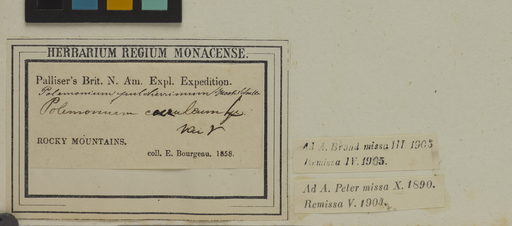 HERBARIUM REGIUM MONACENSE.
Palliser's Brit. N. Am. Expl. Expedition.
Polemonium pulcherrimum
Polemonium caeruleum
Var γ
ROCKY MOUNTAINS.
coll. E. Bourgeau. 1858.
Ad A. Brand missa III 1905
Remissa IV. 1905.
Ad A. Peter missa X. 1890.
Remissa V. 1904.